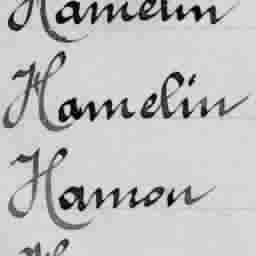 Hamelin
Hamelin
Hamon